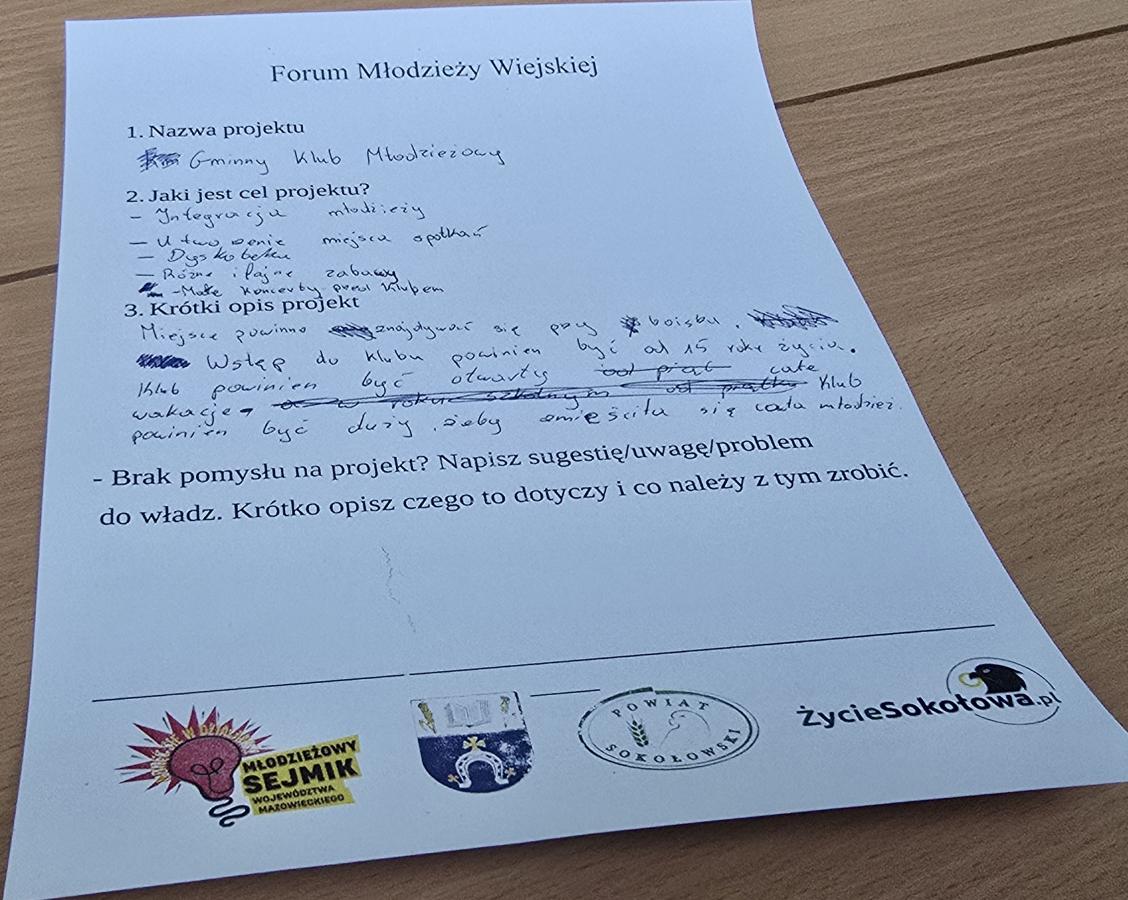 Forum Młodzieży Wiejskiej
1. Nazwa projektu
Gminny Klub Młodzieżowy
2. Jaki jest cel projektu?
- Integracja młodzieży
- Utworzenie miejsca spotkań
- Dyskoteka
- Różne i fajne zabawy
- Małe koncerty przed klubem
3. Krótki opis projekt
Miejsce powinno znajdywać się przy boisku.
Wstęp do klubu powinien być od 15 roku życia.
Klub powinien być otwarty od piąt całe
wakacje, w roku szkolnym od piątku Klub
powinien być duży, żeby zmieściła się cała młodzież.
- Brak pomysłu na projekt? Napisz sugestię/uwagę/problem
do władz. Krótko opisz czego to dotyczy i co należy z tym zrobić.
MŁODZIEŻOWY
SEJMIK
WOJEWÓDZTWA
MAZOWIECKIEGO
POWIAT
SOKOŁOWSKI
ŻycieSokołowa.pl